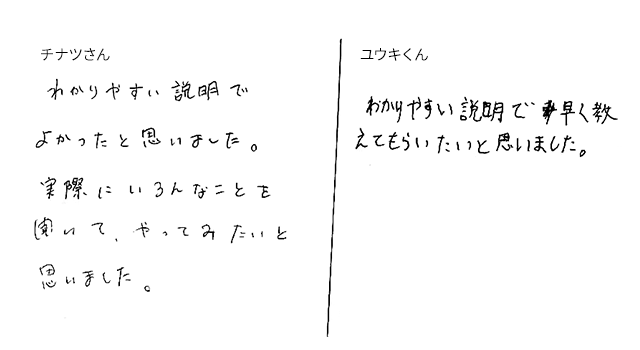 チナツさん
わかりやすい説明で
よかったと思いました。
実際にいろんなことを
聞いて、やってみたいと
思いました。
ユウキくん
わかりやすい説明で早く教
えてもらいたいと思いました。